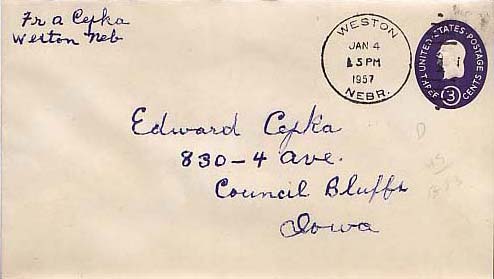 Fr a Cepka
Weston Neb
WESTON
JAN 4
5 PM
1957
NEBR.
UNITED STATES POSTAGE
THREE 3 CENTS
Edward Cepka
830-4 Ave.
Council Bluffs
Iowa
D